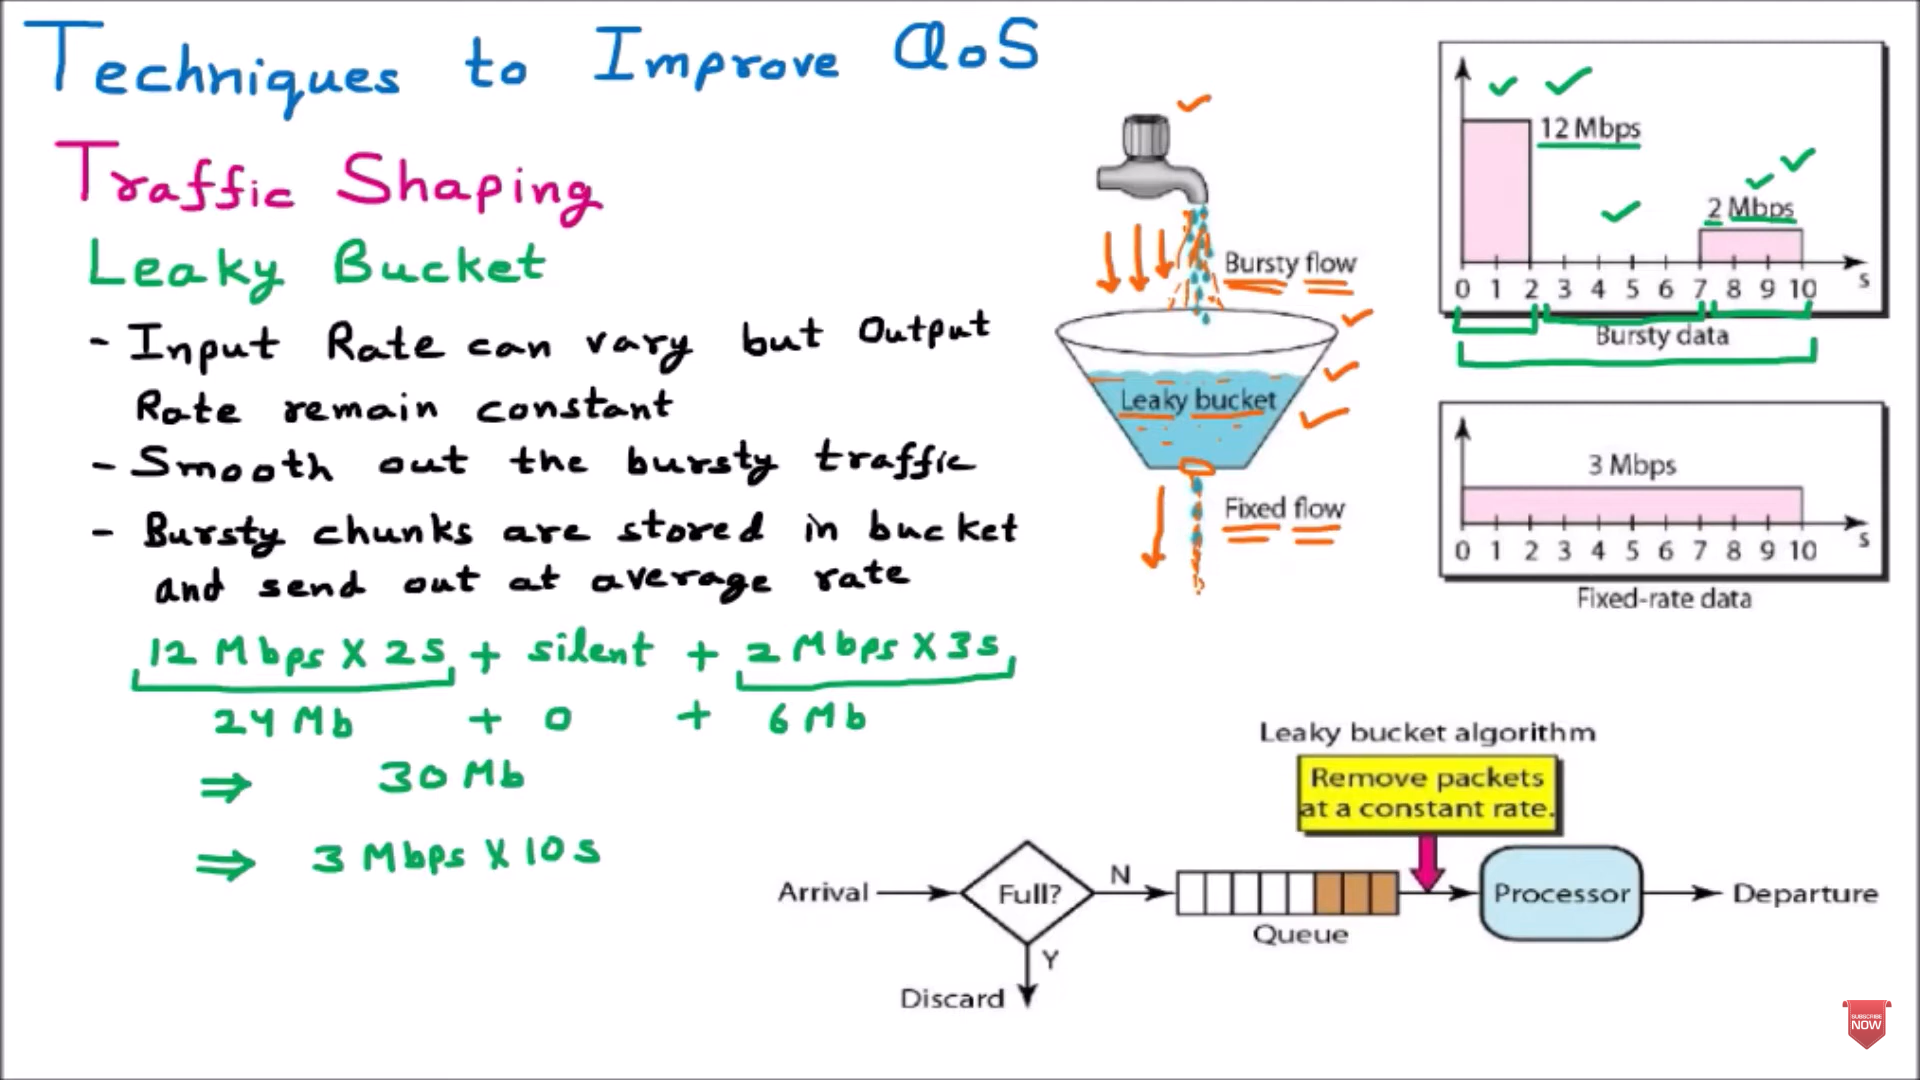 Techniques to Improve QoS
Traffic Shaping
Leaky Bucket
- Input Rate can vary but Output
Rate remain constant
- Smooth out the bursty traffic
- Bursty chunks are stored in bucket
and send out at average rate
12 Mbps X 2s + silent + 2 Mbps X 3s
24 Mb + 0 + 6 Mb
⇒ 30 Mb
⇒ 3 Mbps X 10s
Bursty flow
Leaky bucket
Fixed flow
12 Mbps
2 Mbps
0 1 2 3 4 5 6 7 8 9 10 s
Bursty data
3 Mbps
0 1 2 3 4 5 6 7 8 9 10 s
Fixed-rate data
Leaky bucket algorithm
Remove packets
at a constant rate.
Arrival
Full?
N
Queue
Processor
Departure
Y
Discard
SUBSCRIBE
NOW